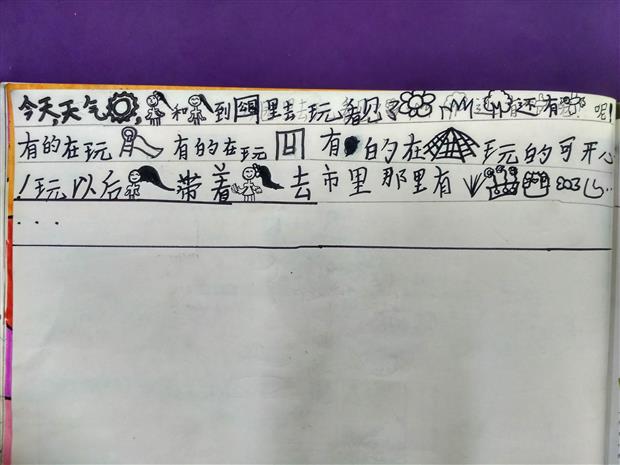 今天天气,和到公园里去玩,看见了还有呢!
有的在玩 有的在玩 有的在玩的可开心
!玩以后带着去市里那里有...
...